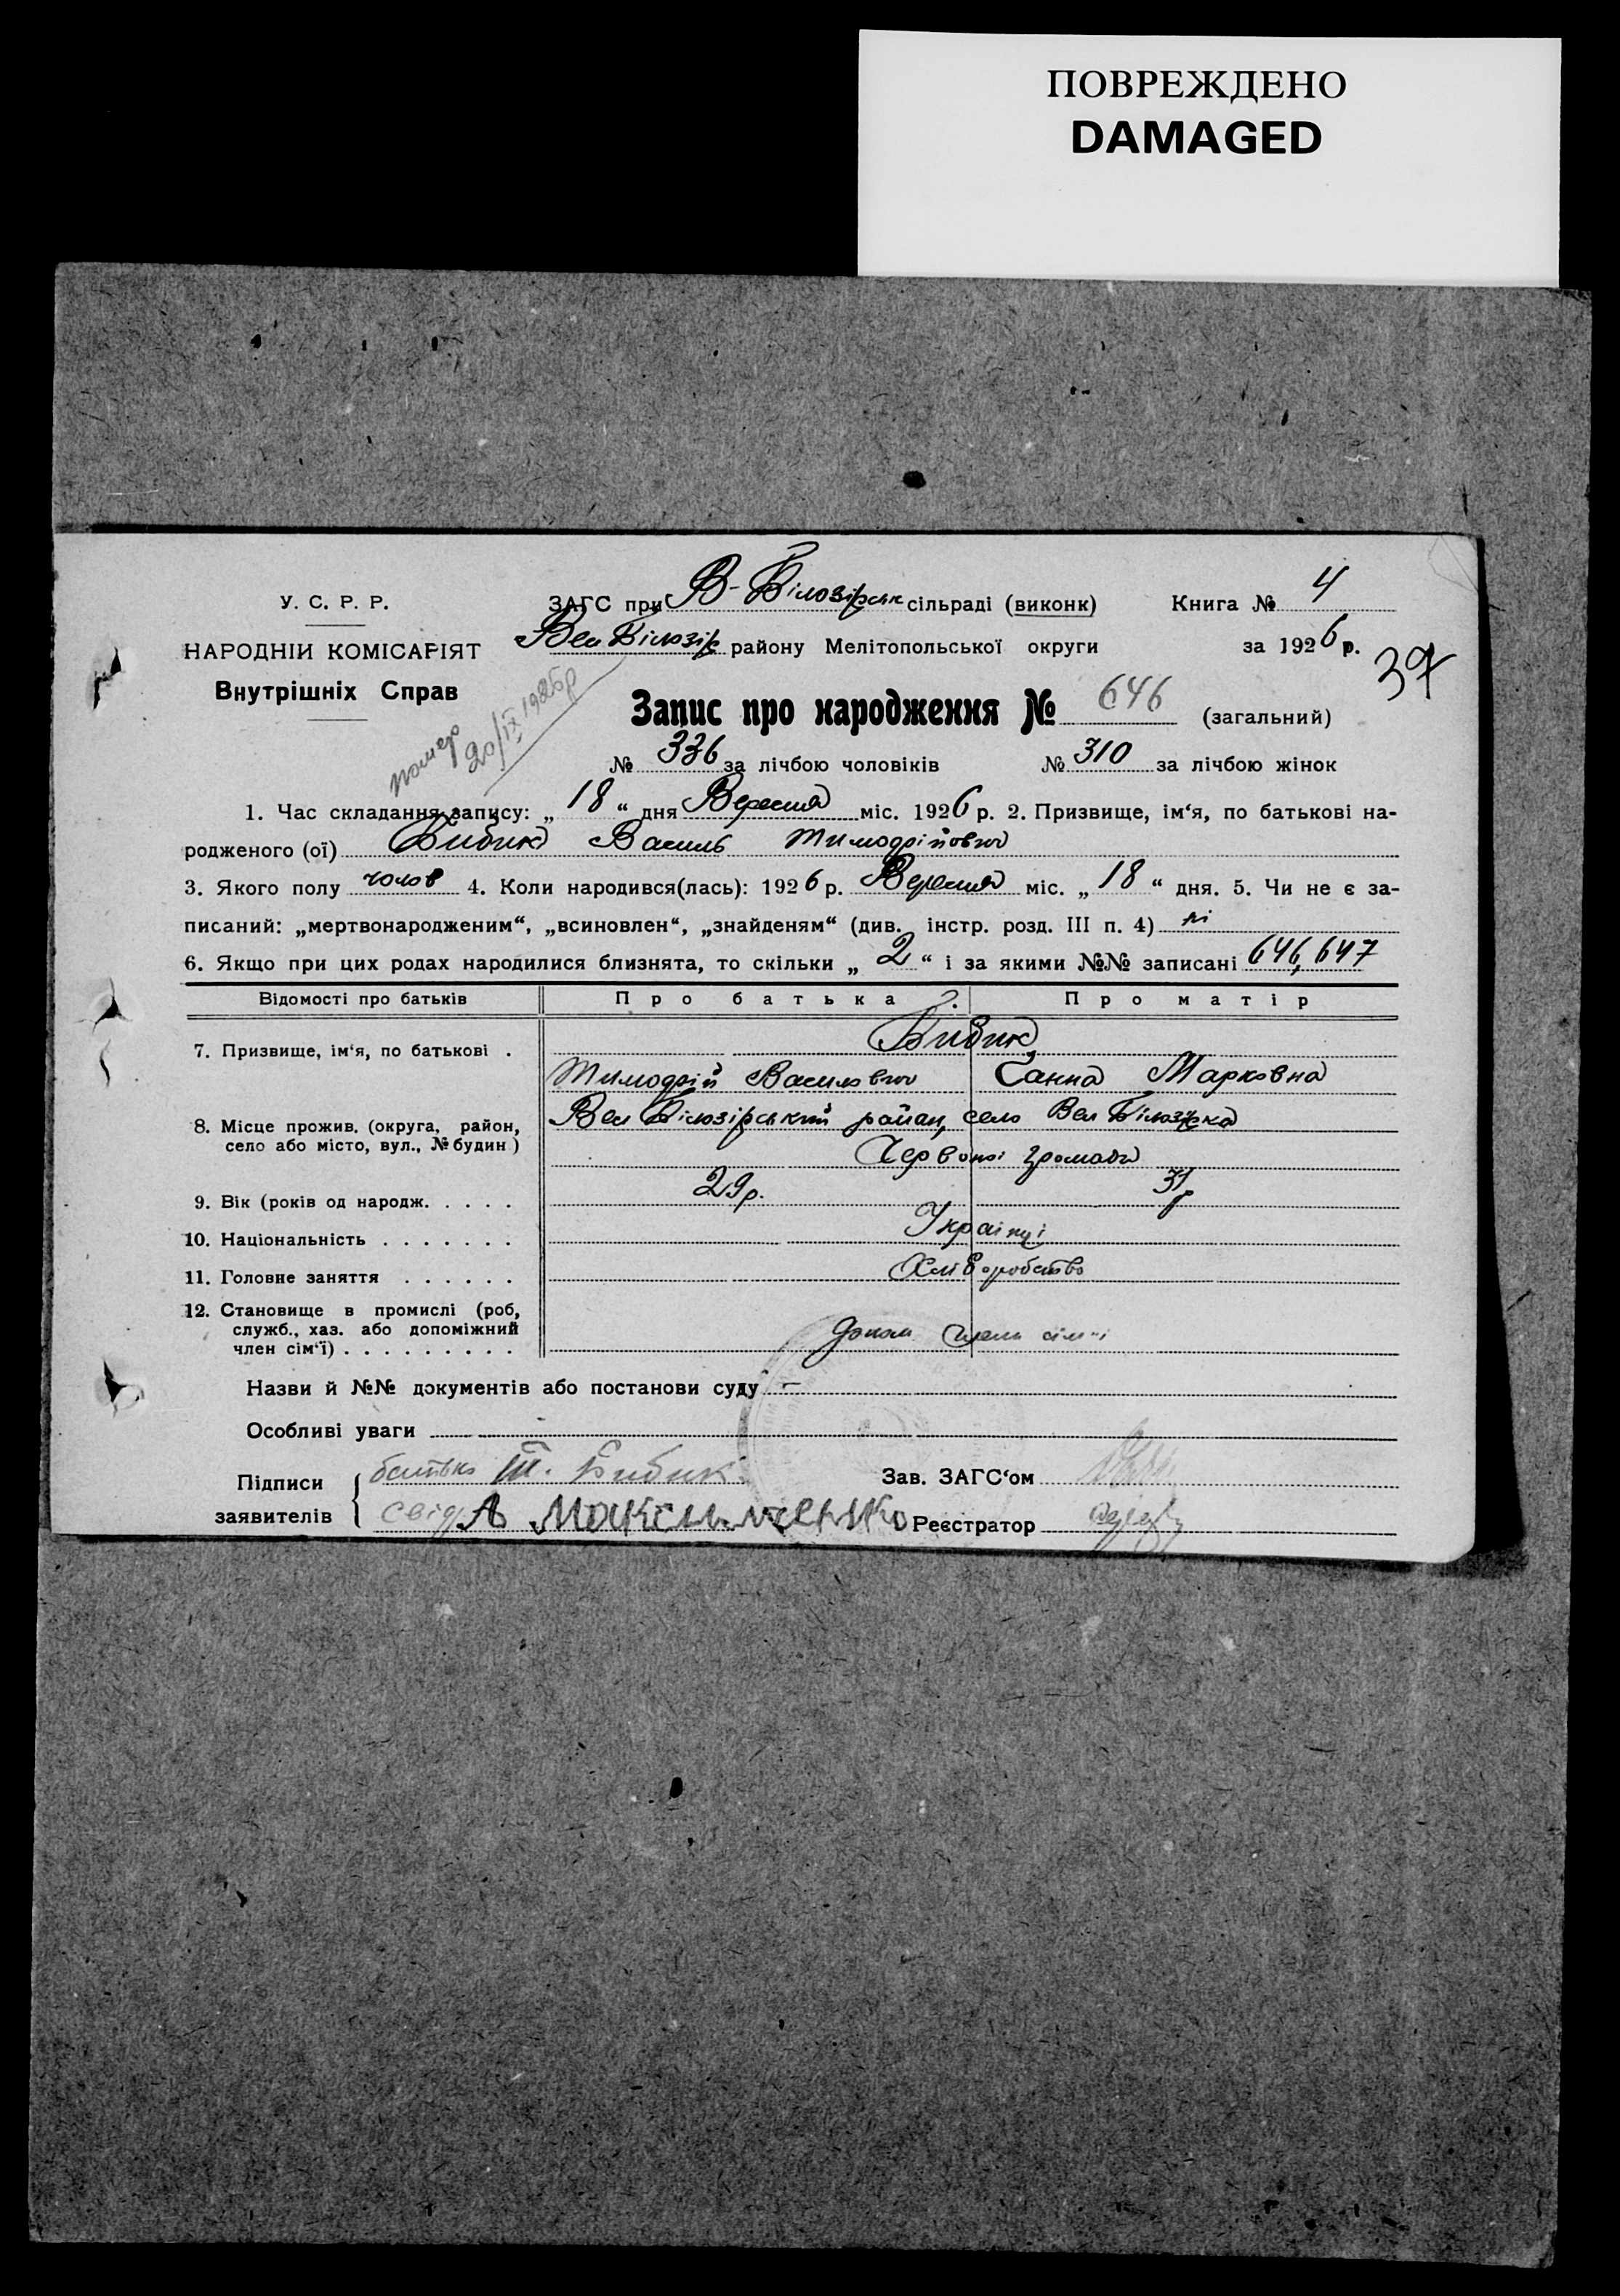 ПОВРЕЖДЕНО
DAMAGED
У. С. Р. Р.
НАРОДНІЙ КОМІСАРІЯТ
Внутрішніх Справ
ЗАГС при В-Білозірськ сільраді (виконк)
Книга № 4
Вел Білозір району Мелітопольської округи
за 1926 р.
37
помер
20/IX 1926р
Запис про народження № 646 (загальний)
№ 336 за лічбою чоловіків № 310 за лічбою жінок
1. Час складання запису: „ 18 “ дня Вересня міс. 1926 р. 2. Призвище, ім‘я, по батькові на-
родженого (ої) Бибик Василь Тимофійович
3. Якого полу чолов 4. Коли народився(лась): 1926 р. Вересня міс. „ 18 “ дня. 5. Чи не є за-
писаний: „мертвонародженим“, „всиновлен“, „знайденям“ (див. інстр. розд. III п. 4) ні
6. Якщо при цих родах народилися близнята, то скільки „ 2 “ і за якими №№ записані 646, 647
Відомості про батьків Про батька Про матір
7. Призвище, ім‘я, по батькові . Бибик
Тимофій Васильович Ганна Марковна
8. Місце прожив. (округа, район, Вел Білозірський район, село Вел Білозірка
село або місто, вул., № будин )
Червоної Громади
9. Вік (років од народж. . . . . 29р. 31р
10. Національність . . . . . . . Українці
11. Головне заняття . . . . . . Хліборобство
12. Становище в промислі (роб,
служб., хаз. або допоміжний
член сім‘ї) . . . . . . . . . член сім-ї
Назви й №№ документів або постанови суду —
Особливі уваги
Підписи батько Т. Бибик
Зав. ЗАГС‘ом
заявителів свід А Максименко
Реєстратор